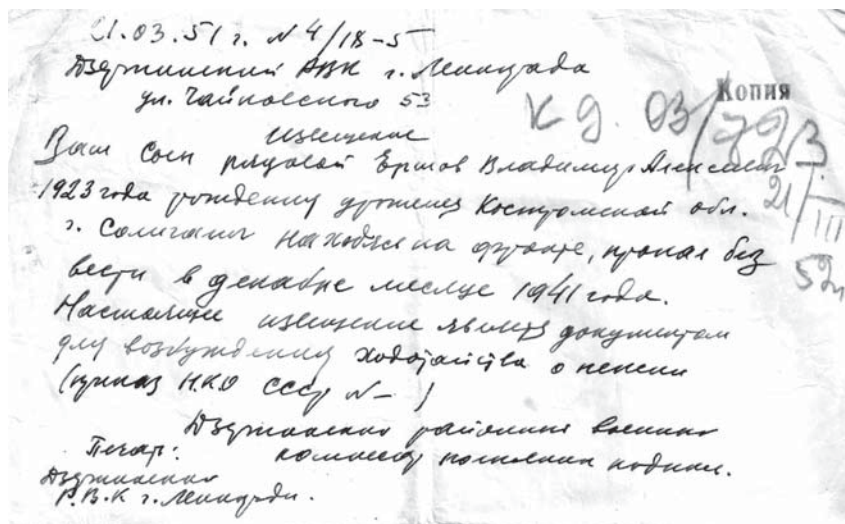 21.03.51 г. № 4/18-5
Дзержинский РВК г. Ленинграда
ул. Чайковского 53
Копия
К д. 03/723
21/III
52г
Извещение
Ваш сын рядовой Ершов Владимир Алексеевич
1923 года рождения уроженец Костромской обл.
г. Солигалич находясь на фронте, пропал без
вести в декабре месяце 1941 года.
Настоящее извещение является документом
для возбуждения ходатайства о пенсии
(приказ НКО СССР № - )
Дзержинский районный военный
Печать: комиссар полковник подпись.
Дзержинский
Р.В.К г. Ленинграда.